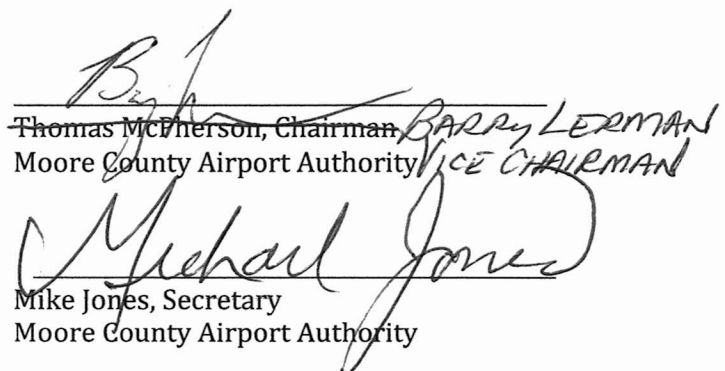 Thomas McPherson, Chairman BARRY LERMAN
Moore County Airport Authority VICE CHAIRMAN
Michael Jones
Mike Jones, Secretary
Moore County Airport Authority